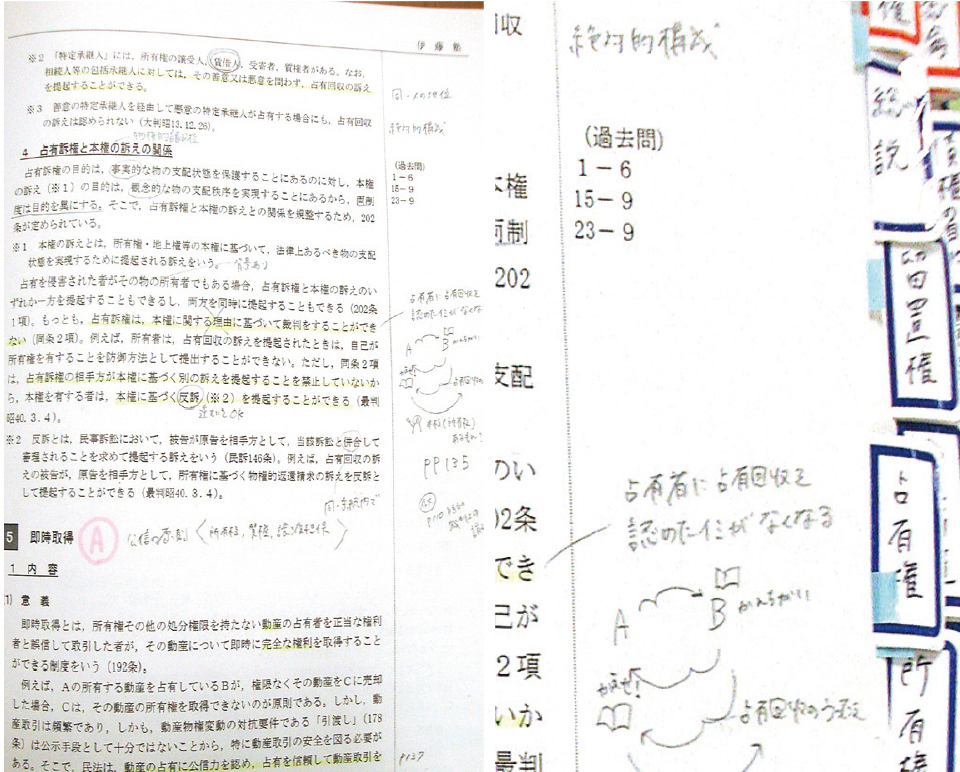 伊藤塾
※2 「特定承継人」には、所有権の譲受人、賃借人、受寄者、質権者がある。なお、
相続人等の包括承継人に対しては、その善意又は悪意を問わず、占有回収の訴え
を提起することができる。
同一人の地位
※3 善意の特定承継人を経由して悪意の特定承継人が占有する場合にも、占有回収
の訴えは認められない(大判昭13.12.26)。
絶対的構成
4 占有訴権と本権の訴えの関係
占有訴権の目的は、事実的な物の支配状態を保護することにあるのに対し、本権
の訴え(※1)の目的は、観念的な物の支配秩序を実現することにあるから、両制
度は目的を異にする。そこで、占有訴権と本権の訴えとの関係を規整するため、202
条が定められている。
(過去問)
1-6
15-9
23-9
※1 本権の訴えとは、所有権・地上権等の本権に基づいて、法律上あるべき物の支配
状態を実現するために提起される訴えをいう。
占有を侵害された者がその物の所有者でもある場合、占有訴権と本権の訴えのい
ずれか一方を提起することもできるし、両方を同時に提起することもできる(202条
1項)。もっとも、占有訴権は、本権に関する理由に基づいて裁判をすることができ
ない(同条2項)。例えば、所有者は、占有回収の訴えを提起されたときは、自己が
所有権を有することを防御方法として提出することができない。ただし、同条2項
は、占有訴権の相手方が本権に基づく別の訴えを提起することを禁止していないか
ら、本権を有する者は、本権に基づく反訴(※2)を提起することができる(最判
昭40.3.4)。
※2 反訴とは、民事訴訟において、被告が原告を相手方として、当該訴訟と併合して
審理されることを求めて提起する訴えをいう(民訴146条)。例えば、占有回収の訴
えの被告が、原告を相手方として、所有権に基づく物権的返還請求の訴えを反訴と
して提起することができる(最判昭40.3.4)。
占有者に占有回収を
認めたイミがなくなる
A
B
PP135
同一手続内で
5 即時取得
A
公信の原則
1 内容
(1) 意義
即時取得とは、所有権その他の処分権限を持たない動産の占有者を正当な権利
者と誤信して取引した者が、その動産について即時に完全な権利を取得すること
ができる制度をいう(192条)。
例えば、Aの所有する動産を占有しているBが、権限なくその動産をCに売却
した場合、Cは、その動産の所有権を取得できないのが原則である。しかし、動
産取引は頻繁であり、しかも、動産物権変動の対抗要件である「引渡し」(178
条)は公示手段として十分ではないことから、特に動産取引の安全を図る必要が
ある。そこで、民法は、動産の占有に公信力を認め、占有を信頼して動産取引を
P137
回収
絶対的構成
(過去問)
1-6
15-9
23-9
本権
両制
202
支配
のい
02条
でき
己が
2項
いか
最判
占有者に占有回収を
認めたイミがなくなる
A
B
かんちがい
かえせ!
占有回収のうったえ
総説
留置権
占有権
所有権